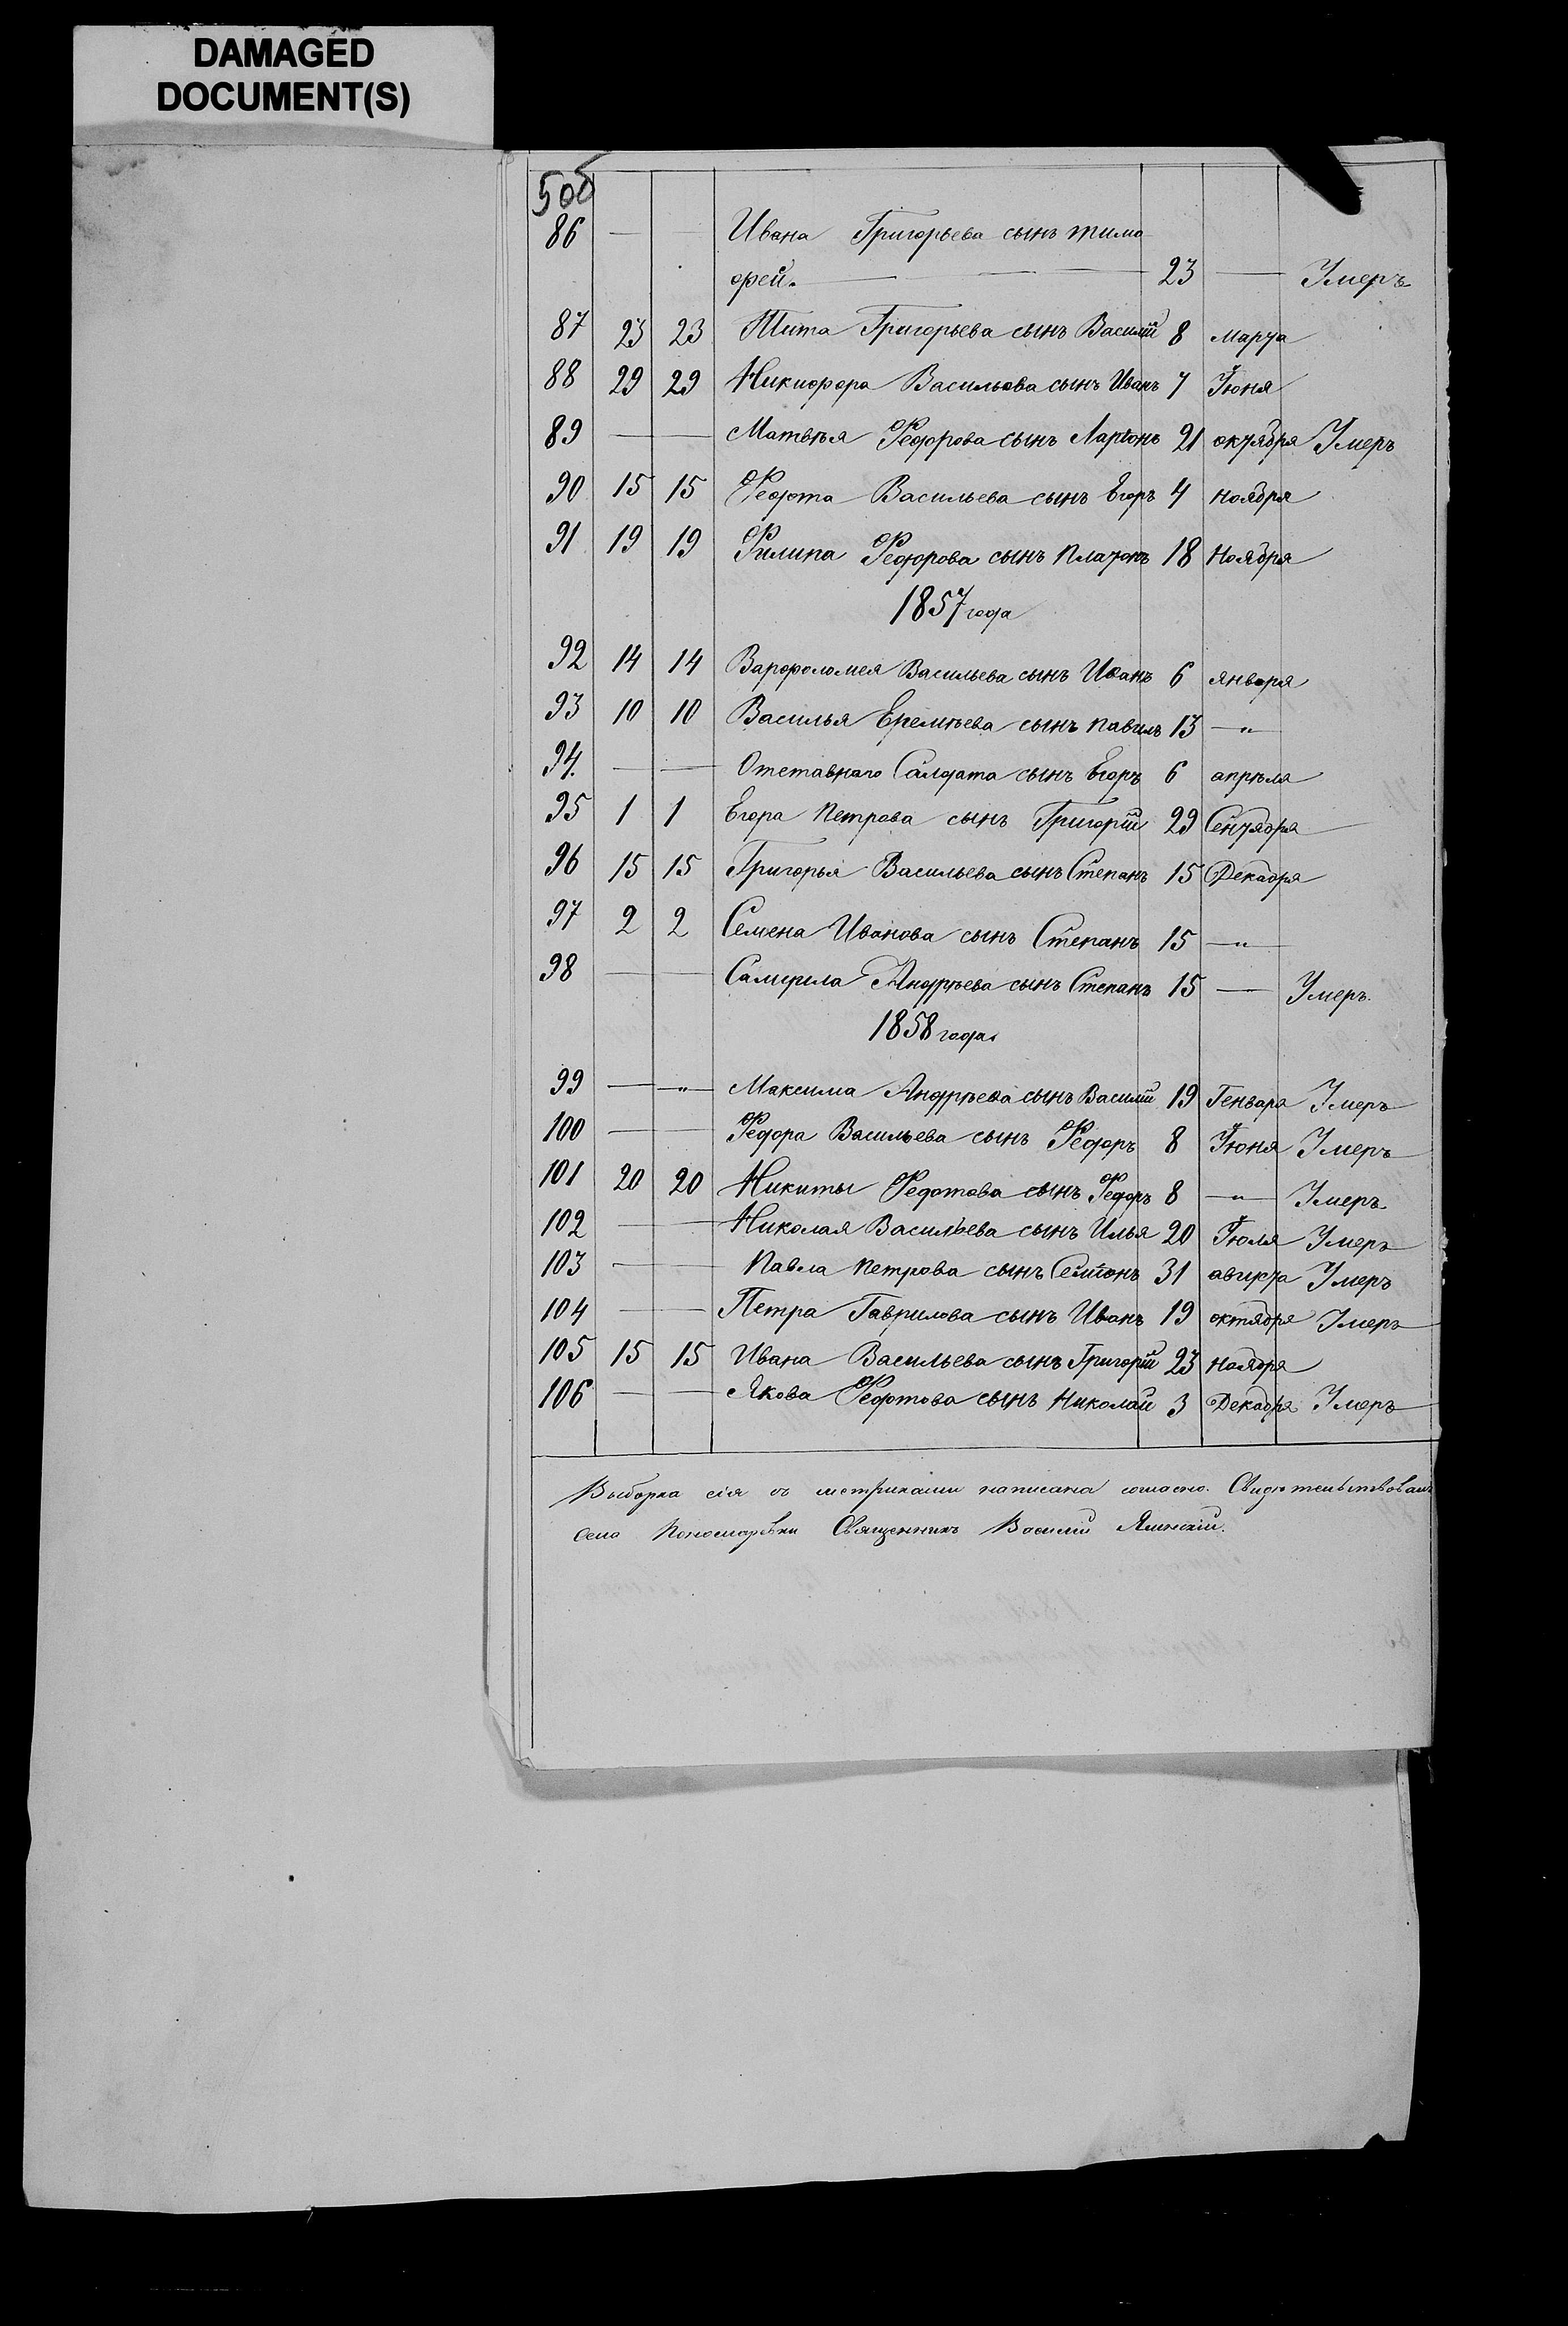 DAMAGED
DOCUMENT(S)
50об
86 — — Ивана Григорьева сынъ тимо
фей. — 23 — Умеръ
87 23 23 Тита Григорьева сынъ Василій 8 марта
88 29 29 Никифора Васильева сынъ Иванъ 7 Іюня
89 — — Матвѣя Федорова сынъ Ларіонъ 21 октября Умеръ
90 15 15 Федота Васильева сынъ Егоръ 4 ноября
91 19 19 Филипа Федорова сынъ платонъ 18 Ноября
1857 года
92 14 14 Варфоломея Васильева сынъ Иванъ 6 января
93 10 10 Василья Еремѣева сынъ павилъ 13 — " —
94. — — Отставнаго Салдата сынъ Егоръ 6 апрѣля
95 1 1 Егора петрова сынъ Григорій 29 Сентября
96 15 15 Григорья Васильева сынъ Степанъ 15 Декабря
97 2 2 Семена Иванова сынъ Степанъ 15 — " —
98 — — Андрѣева сынъ Степанъ 15 — Умеръ.
1858 года.
99 — " — Максима Андрѣева сынъ Василій 19 Генваря Умеръ
100 — — Федора Васильева сынъ Федоръ 8 Іюня Умеръ
101 20 20 Никиты Федотова сынъ Федоръ 8 — " — Умеръ
102 — — Николая Васильева сынъ Илья 20 Іюля Умеръ
103 — — Павла петрова сынъ Семіонъ 31 августа Умеръ
104 — — Петра Гаврилова сынъ Иванъ 19 октября Умеръ
105 15 15 Ивана Васильева сынъ Григорій 23 ноября
106 — — Якова Федотова сынъ Николай 3 Декабря Умеръ
Выборка сія съ метриками написана согласно. Свидѣтельствовалъ
села Пономаревки Священникъ Василій